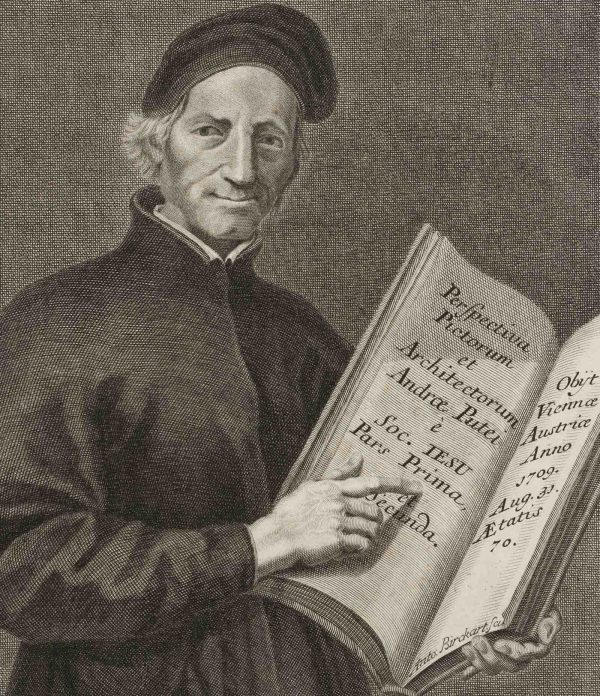 Perſpectiva
Pictorum
et
Architectorum
Andreæ Putei
è
Soc. IESU
Pars Prima,
et
Secunda.
Obijt
Viennæ
Austriæ
Anno
1709.
Aug. 31.
Ætatis
70.
Anto. Birckart ſcu.